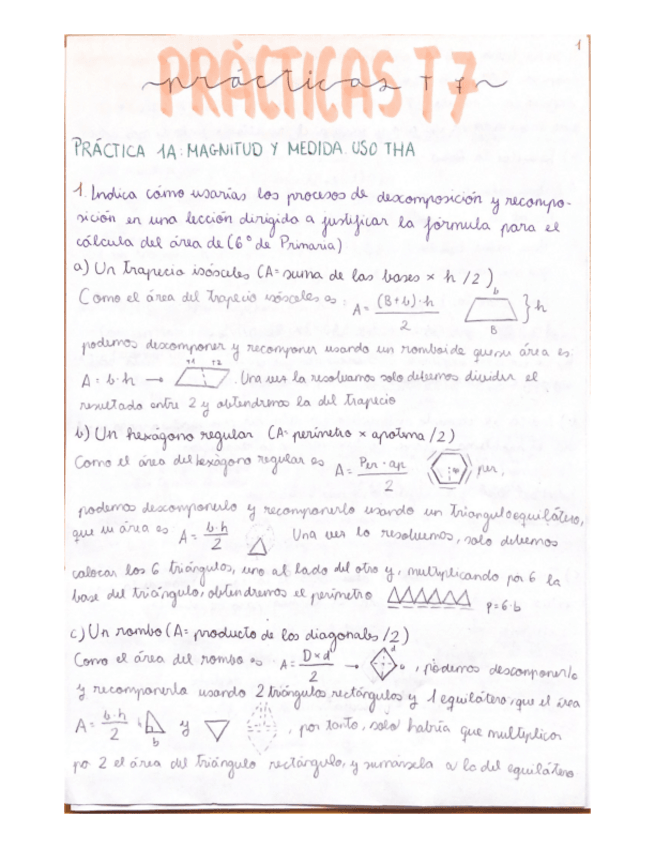 1
PRÁCTICAS T7
prácticas T 7
PRÁCTICA 1A: MAGNITUD Y MEDIDA. USO THA
1. Indica cómo usarías los procesos de descomposición y recompo-
sición en una lección dirigida a justificar la fórmula para el
cálculo del área de (6º de Primaria)
a) Un trapecio isósceles (A= suma de las bases × h /2)
Como el área del trapecio isósceles es: A= (B+b)·h / 2 b B h
podemos descomponer y recomponer usando un romboide que su área es
A= b·h → T1 T2 . Una vez la resolvamos solo debemos dividir el
resultado entre 2 y obtendremos la del trapecio
b) Un hexágono regular (A= perímetro × apotema /2)
Como el área del hexágono regular es A= Per · ap / 2 ap per,
podemos descomponerlo y recomponerlo usando un triangulo equilátero,
que su área es A= b·h / 2 Una vez lo resolvemos, solo debemos
colocar los 6 triángulos, uno al lado del otro y, multiplicando por 6 la
base del triángulo, obtendremos el perímetro p=6·b
c) Un rombo (A= producto de los diagonales /2)
Como el área del rombo es A= D×d / 2 → d D, podemos descomponerlo
y recomponerla usando 2 triángulos rectángulos y 1 equilátero, que el área
A= b·h / 2 h b y , por tanto, solo habría que multiplicar
por 2 el área del triángulo rectángulo, y sumársela a la del equilátero